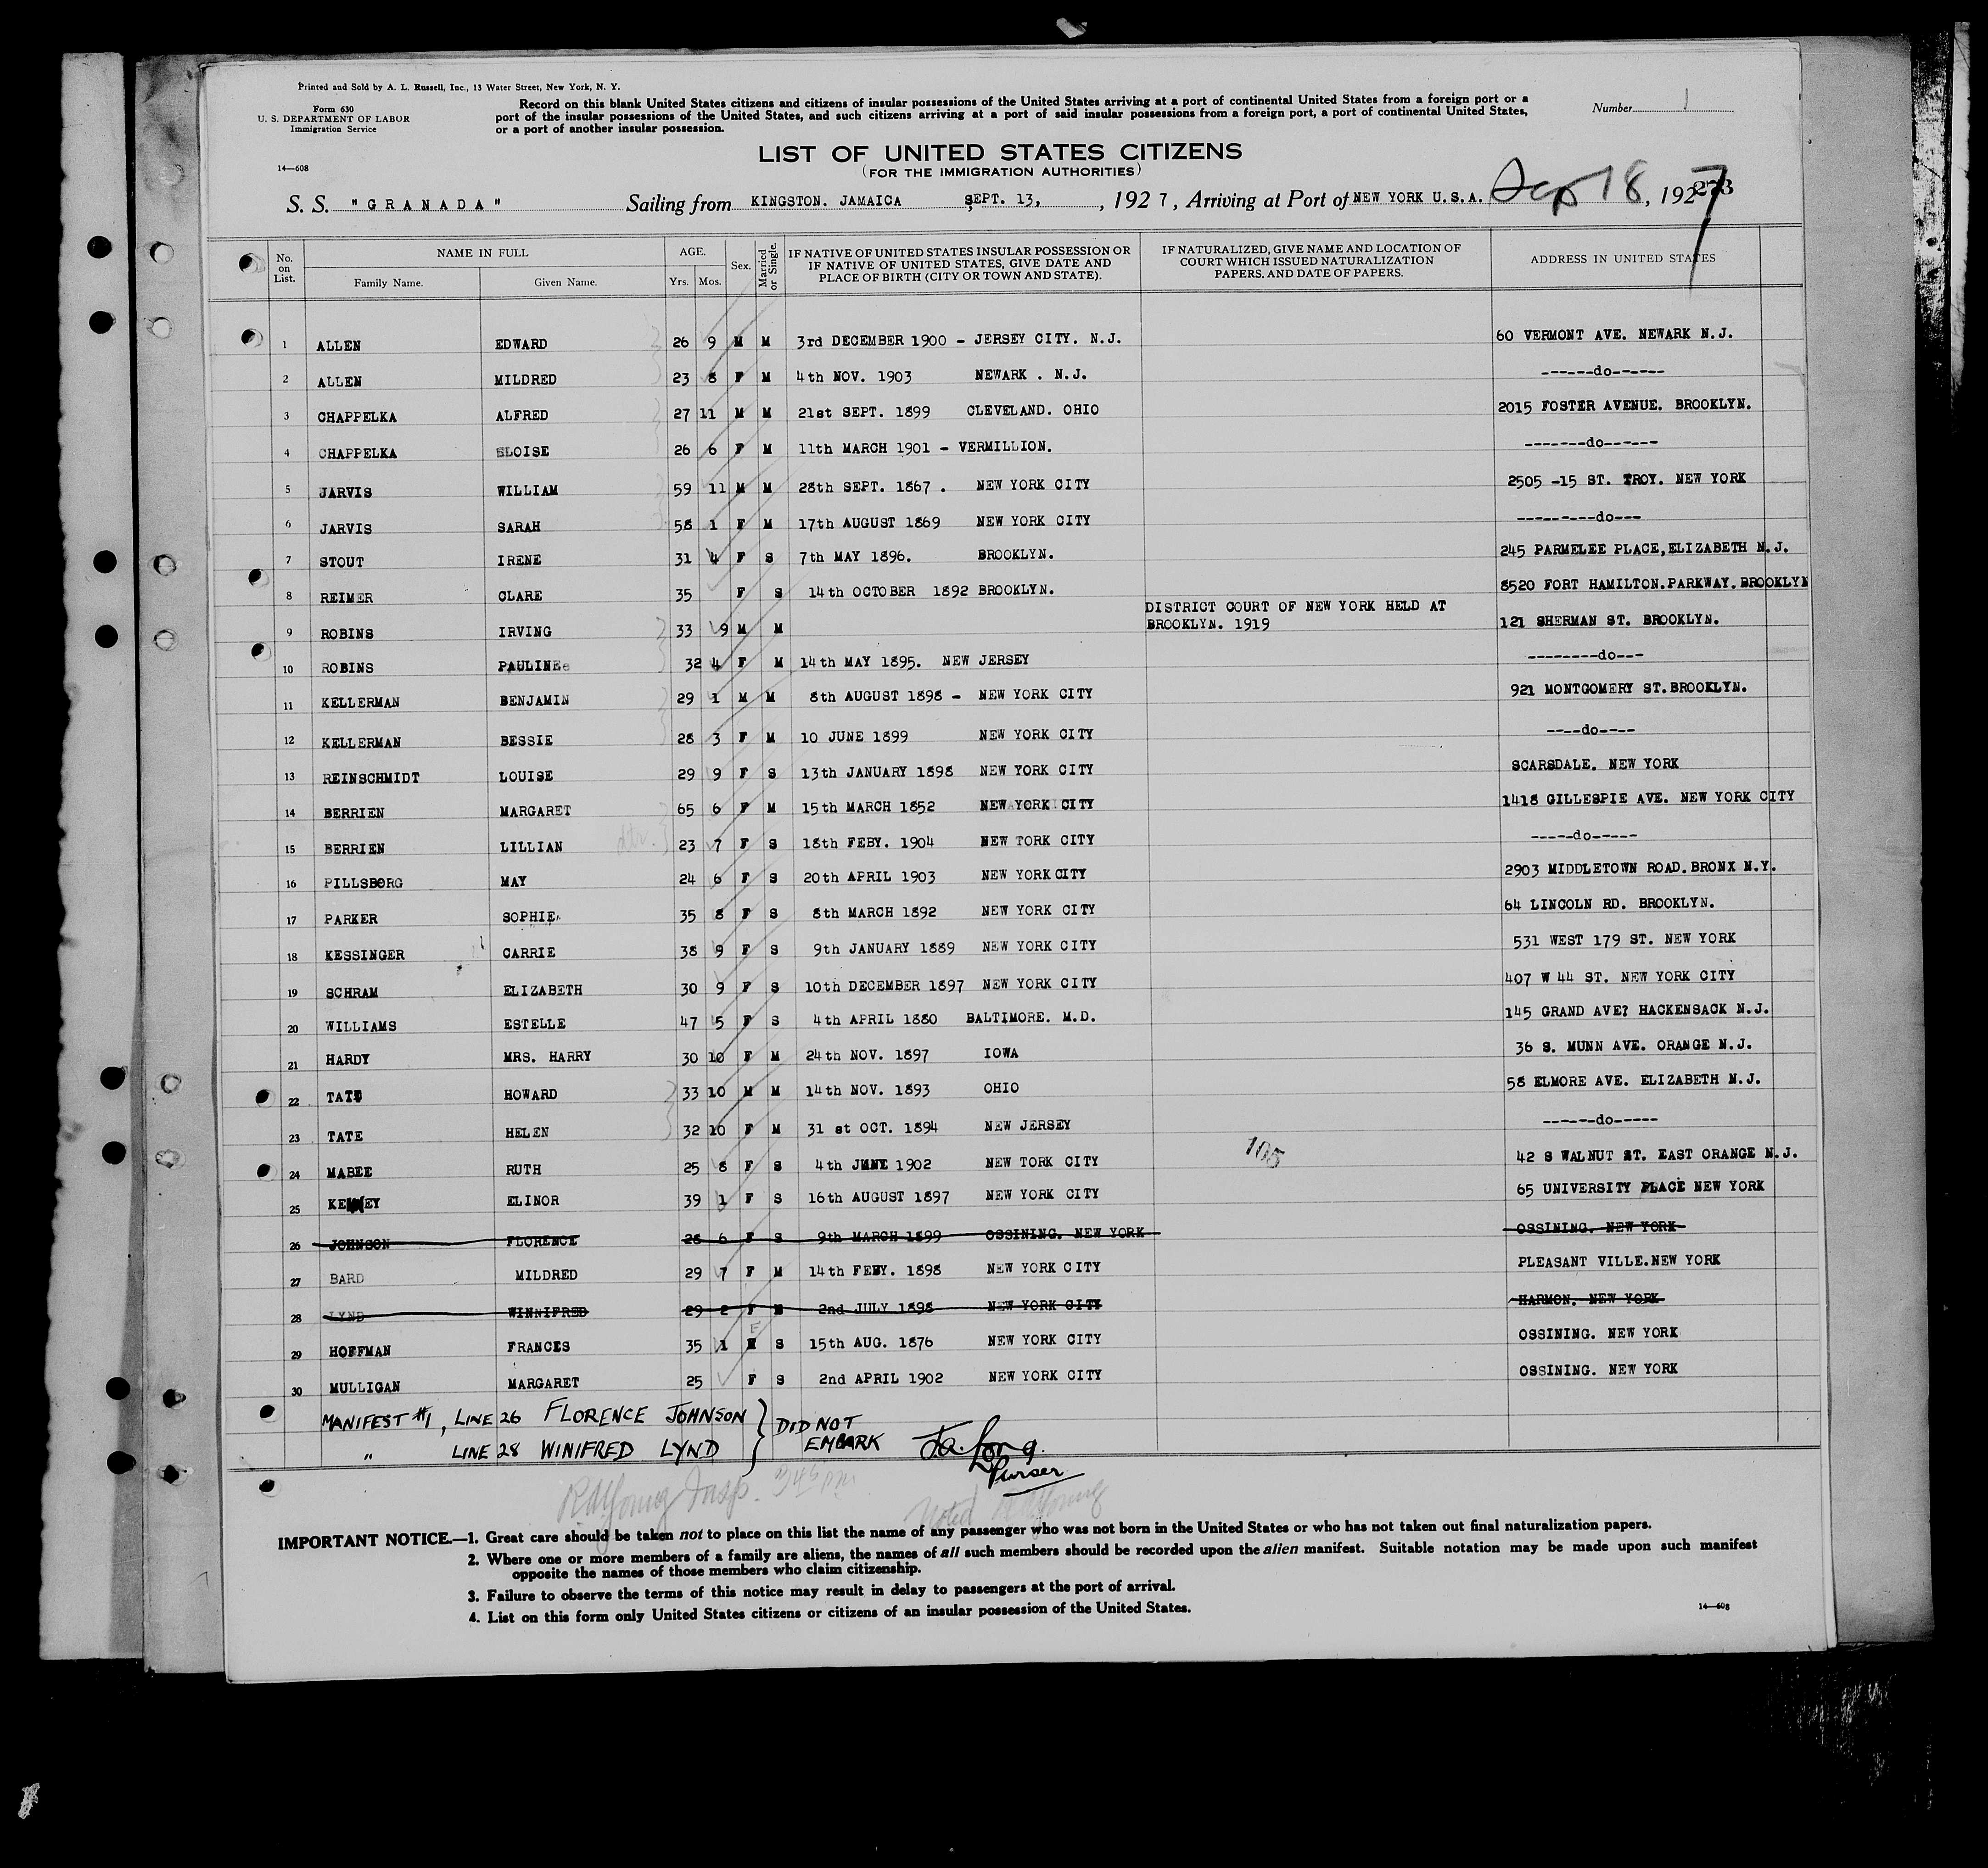 Printed and Sold by A. L. Russell, Inc., 13 Water Street, New York, N. Y.
Form 630
U. S. DEPARTMENT OF LABOR
Immigration Service
14—608
Record on this blank United States citizens and citizens of insular possessions of the United States arriving at a port of continental United States from a foreign port or a
port of the insular possessions of the United States, and such citizens arriving at a port of said insular possessions from a foreign port, a port of continental United States,
or a port of another insular possession.
Number 1
LIST OF UNITED STATES CITIZENS
(FOR THE IMMIGRATION AUTHORITIES)
S. S. "GRANADA" Sailing from KINGSTON. JAMAICA SEPT. 13, , 192 7, Arriving at Port of NEW YORK U.S.A. Sep 18, 1927 273
No. on List. NAME IN FULL Family Name. Given Name. AGE. Yrs. Mos. Sex. Married or Single. IF NATIVE OF UNITED STATES INSULAR POSSESSION OR IF NATIVE OF UNITED STATES, GIVE DATE AND PLACE OF BIRTH (CITY OR TOWN AND STATE). IF NATURALIZED, GIVE NAME AND LOCATION OF COURT WHICH ISSUED NATURALIZATION PAPERS, AND DATE OF PAPERS. ADDRESS IN UNITED STATES
1 ALLEN EDWARD 26 9 M M 3rd DECEMBER 1900 - JERSEY CITY. N.J. 60 VERMONT AVE. NEWARK N.J.
2 ALLEN MILDRED 23 8 F M 4th NOV. 1903 NEWARK . N.J. ------do------
3 CHAPPELKA ALFRED 27 11 M M 21st SEPT. 1899 CLEVELAND. OHIO 2015 FOSTER AVENUE. BROOKLYN.
4 CHAPPELKA ELOISE 26 6 F M 11th MARCH 1901 - VERMILLION. -------do------
5 JARVIS WILLIAM 59 11 M M 28th SEPT. 1867 . NEW YORK CITY 2505 -15 ST. TROY. NEW YORK
6 JARVIS SARAH 58 1 F M 17th AUGUST 1869 NEW YORK CITY ---------do---
7 STOUT IRENE 31 4 F S 7th MAY 1896. BROOKLYN. 245 PARMELEE PLACE,ELIZABETH N.J.
8 REIMER CLARE 35 F S 14th OCTOBER 1892 BROOKLYN. 8520 FORT HAMILTON.PARKWAY.BROOKLYN
9 ROBINS IRVING 33 9 M M DISTRICT COURT OF NEW YORK HELD AT BROOKLYN. 1919 121 SHERMAN ST. BROOKLYN.
10 ROBINS PAULINEe 32 4 F M 14th MAY 1895. NEW JERSEY --------do---
11 KELLERMAN BENJAMIN 29 1 M M 8th AUGUST 1898 - NEW YORK CITY 921 MONTGOMERY ST.BROOKLYN.
12 KELLERMAN BESSIE 28 3 F M 10 JUNE 1899 NEW YORK CITY ----do----
13 REINSCHMIDT LOUISE 29 9 F S 13th JANUARY 1898 NEW YORK CITY SCARSDALE. NEW YORK
14 BERRIEN MARGARET 65 6 F M 15th MARCH 1852 NEW YORK CITY 1418 GILLESPIE AVE. NEW YORK CITY
15 BERRIEN LILLIAN dtr. 23 7 F S 18th FEBY. 1904 NEW TORK CITY -----do-----
16 PILLSBORG MAY 24 6 F S 20th APRIL 1903 NEW YORK CITY 2903 MIDDLETOWN ROAD.BRONX N.Y.
17 PARKER SOPHIE 35 8 F S 8th MARCH 1892 NEW YORK CITY 64 LINCOLN RD. BROOKLYN.
18 KESSINGER CARRIE 38 9 F S 9th JANUARY 1889 NEW YORK CITY 531 WEST 179 ST. NEW YORK
19 SCHRAM ELIZABETH 30 9 F S 10th DECEMBER 1897 NEW YORK CITY 407 W 44 ST. NEW YORK CITY
20 WILLIAMS ESTELLE 47 5 F S 4th APRIL 1880 BALTIMORE. M.D. 145 GRAND AVE? HACKENSACK N.J.
21 HARDY MRS. HARRY 30 10 F M 24th NOV. 1897 IOWA 36 S. MUNN AVE. ORANGE N.J.
22 TATE HOWARD 33 10 M M 14th NOV. 1893 OHIO 58 ELMORE AVE. ELIZABETH N.J.
23 TATE HELEN 32 10 F M 31 st OCT. 1894 NEW JERSEY ------do-----
24 MABEE RUTH 25 8 F S 4th JUNE 1902 NEW TORK CITY 105 42 S WALNUT ST. EAST ORANGE N.J.
25 ELINOR 39 1 F S 16th AUGUST 1897 NEW YORK CITY 65 UNIVERSITY PLACE NEW YORK
26 JOHNSON FLORENCE 28 6 F S 9th MARCH 1899 OSSINING. NEW YORK OSSINING. NEW YORK
27 BARD MILDRED 29 7 F M 14th FEBY. 1898 NEW YORK CITY PLEASANT VILLE.NEW YORK
28 LYND WINNIFRED 29 2 F M 2nd JULY 1898 NEW YORK CITY HARMON. NEW YORK
29 HOFFMAN FRANCES 35 1 F S 15th AUG. 1876 NEW YORK CITY OSSINING. NEW YORK
30 MULLIGAN MARGARET 25 F S 2nd APRIL 1902 NEW YORK CITY OSSINING. NEW YORK
MANIFEST #1, LINE 26 FLORENCE JOHNSON } DID NOT
" LINE 28 WINIFRED LYND } EMBARK J.A. Long.
Purser
Insp. 345 PM Noted
IMPORTANT NOTICE.—1. Great care should be taken not to place on this list the name of any passenger who was not born in the United States or who has not taken out final naturalization papers.
2. Where one or more members of a family are aliens, the names of all such members should be recorded upon the alien manifest. Suitable notation may be made upon such manifest
opposite the names of those members who claim citizenship.
3. Failure to observe the terms of this notice may result in delay to passengers at the port of arrival.
4. List on this form only United States citizens or citizens of an insular possession of the United States.
14—608